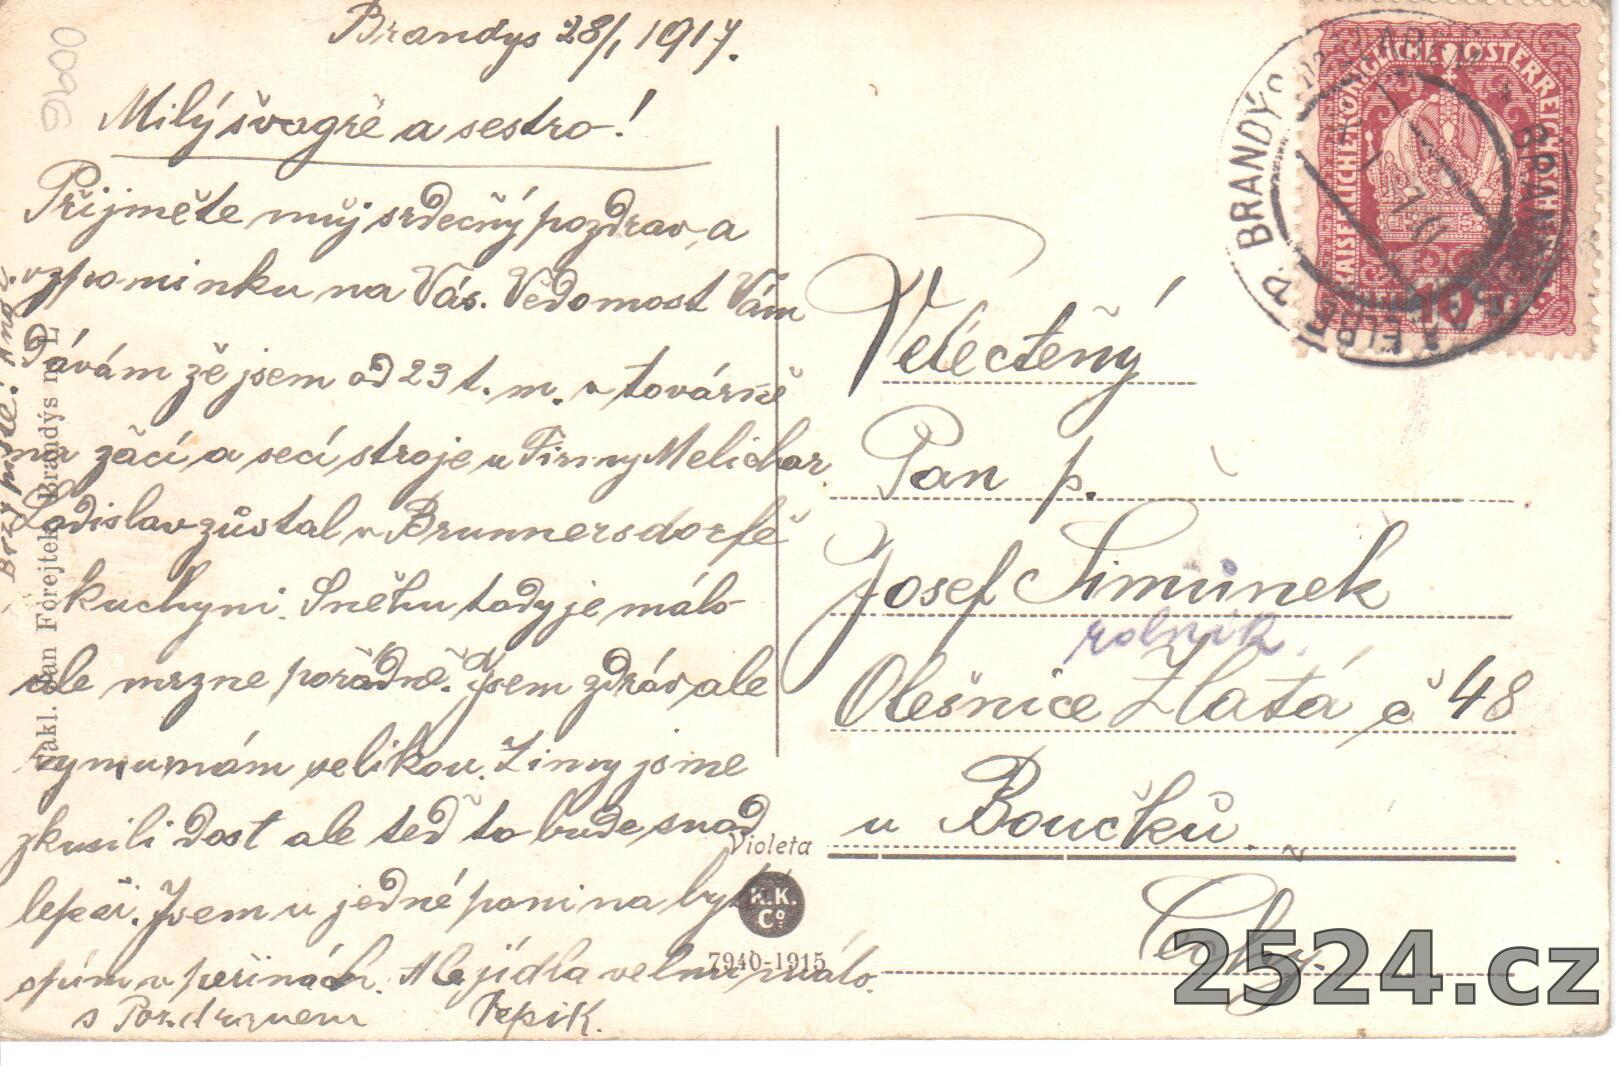 Brandys 28/1 1917.
Milý švagře a sestro!
Přijměte můj srdečný pozdrav a
vzpominku na Vás. Vědomost Vám
dávám že jsem od 23 t. m. v továrně
na žací a secí stroje u Firmy Melichar
Ladislav zůstal v Brunnersdorfě
v kuchyni. Sněhu tady je málo
ale mrzne pořádně. Jsem zdráv ale
rymu mám velikou. Zimy jsme
zkusili dost ale teď to bude snad
lepší. Jsem u jedné pani na bytě
spím v peřinách. Ale jídla velmi málo.
s Pozdravem Pepik.
Brzy pište!
Nakl. Jan Forejtek, Brandýs n. L.
0096
Violeta
K.K.
Co
7940-1915
KAISERLICHE KÖNIGLICHE ÖSTERREICHISCHE POST
10
BRANDÝS
ELBE
Veléctěný
Pan p.
Josef Šimůnek
rolník.
Olešnice Zlatá č 48
u Boučků
Čechy.
2524.cz